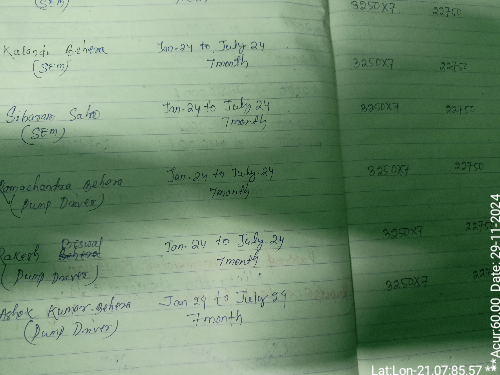 (SEM) 3250x7 22750
Kalandi Behera Jan-24 to July 24
(SEM) 7month 3250x7 22750
Sibaram Sahu Jan-24 to July 24 3250x7 22750
(SEM) 7month
Ramachandra Behera Jan-24 to July 24 3250x7 22750
(Dump Driver) 7month
Rakesh Jan-24 to July 24 3250x7 2275
(Dump Driver) 7month
Ashok Kumar Behera Jan 24 to July 24 3250x7
(Dump Driver) 7month
Lat:Lon-21.07:85.57 **Acur:60.00 Date: 29-11-2024